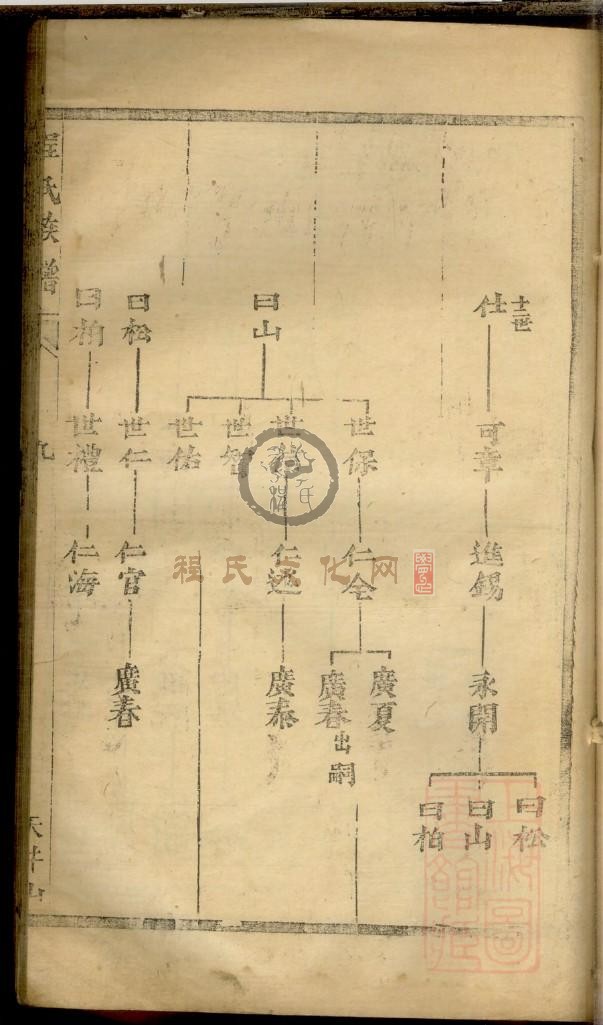 十三世
仕
可章
進錫
永開
曰松
曰山
曰柏
曰山
世保
仁全
廣夏
廣春出嗣
世
仁
廣泰
世智
世佑
曰松
世仁
仁官
廣春
曰柏
世禮
仁海
程氏族譜
九
天井山
程氏文化网
上海圖書館藏